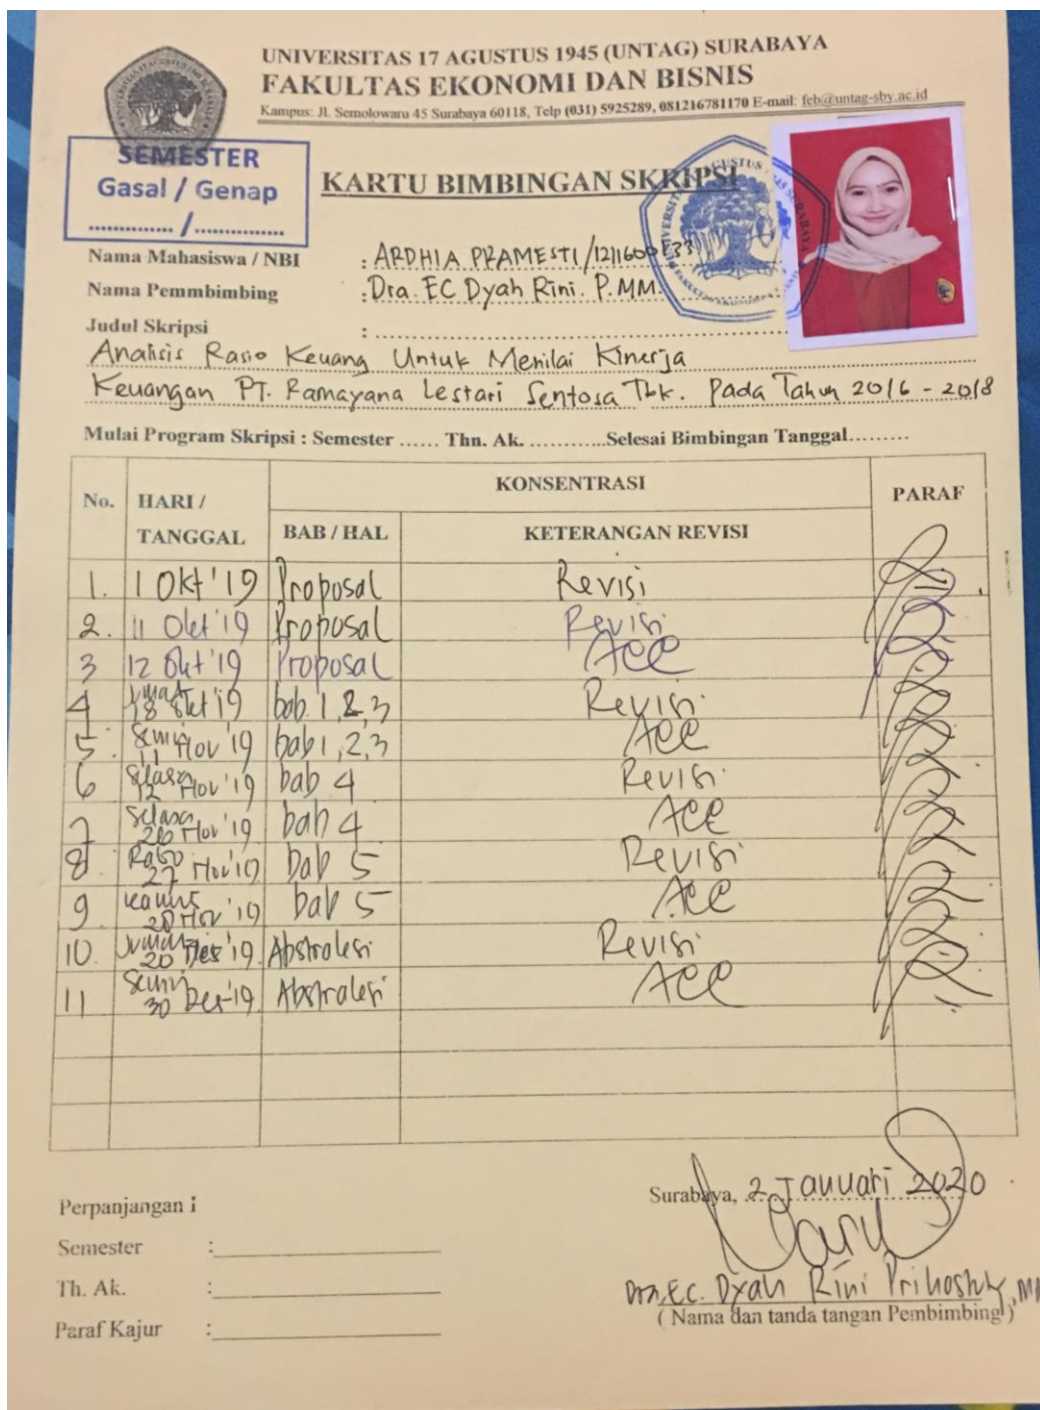 UNIVERSITAS 17 AGUSTUS 1945 (UNTAG) SURABAYA
FAKULTAS EKONOMI DAN BISNIS
Kampus: Jl. Semolowaru 45 Surabaya 60118, Telp (031) 5925289, 081216781170 E-mail: feb@untag-sby.ac.id
SEMESTER
Gasal / Genap
............... / ...............
KARTU BIMBINGAN SKRIPSI
Nama Mahasiswa / NBI : ARDHIA PRAMESTI /
Nama Pemmbimbing : Dra. EC Dyah Rini. P. MM.
Judul Skripsi :
Analisis Rasio Keuang Untuk Menilai Kinerja
Keuangan PT. Ramayana Lestari Sentosa Tbk. Pada Tahun 2016 - 2018
Mulai Program Skripsi : Semester ...... Thn. Ak. ............Selesai Bimbingan Tanggal.........
No. HARI / TANGGAL KONSENTRASI PARAF
BAB / HAL KETERANGAN REVISI
1. 1 Okt '19 Proposal Revisi
2. 11 Okt '19 Proposal Revisi
3 12 Okt '19 Proposal ACC
4 18 Okt '19 bab 1, 2, 3 Revisi
5. Senin 11 Nov '19 bab 1, 2, 3 ACC
6 Selasa 12 Nov '19 bab 4 Revisi
7 Selasa 26 Nov '19 bab 4 ACC
8. Rabo 27 Nov '19 bab 5 Revisi
9. Nov '19 bab 5 ACC
10. 20 Des '19. Revisi
11 Senin 30 Des '19 ACC
Perpanjangan I
Semester :
Th. Ak. :
Paraf Kajur :
Surabaya, 2 Januari 2020
Dra. Ec. Dyah Rini
( Nama dan tanda tangan Pembimbing )